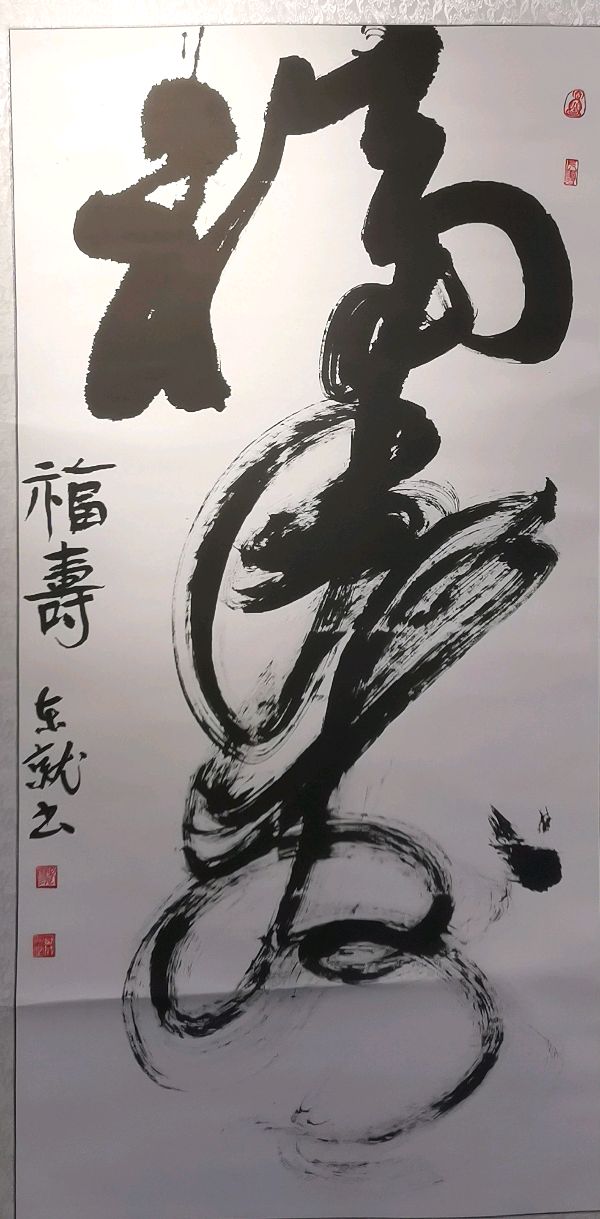 福壽
福壽
东就书